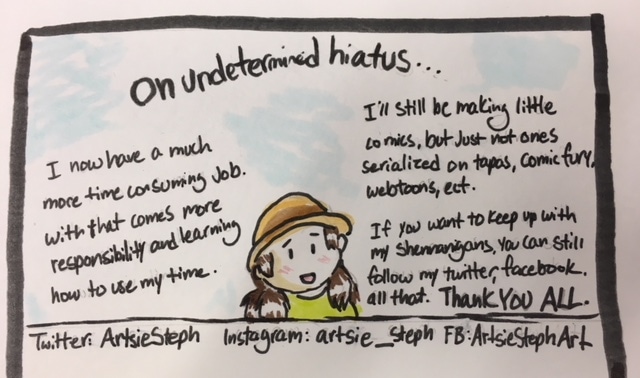 On undetermined hiatus...
I now have a much
more time consuming job.
with that comes more
responsibility and learning
how to use my time.
I'll still be making little
comics, but just not ones
serialized on tapas, comic fury,
webtoons, ect.
If you want to keep up with
my shennanigans, you can still
follow my twitter, facebook.
all that. Thank YOU ALL.
Twitter: ArtsieSteph Instagram: artsie_steph FB: ArtsieStephArt